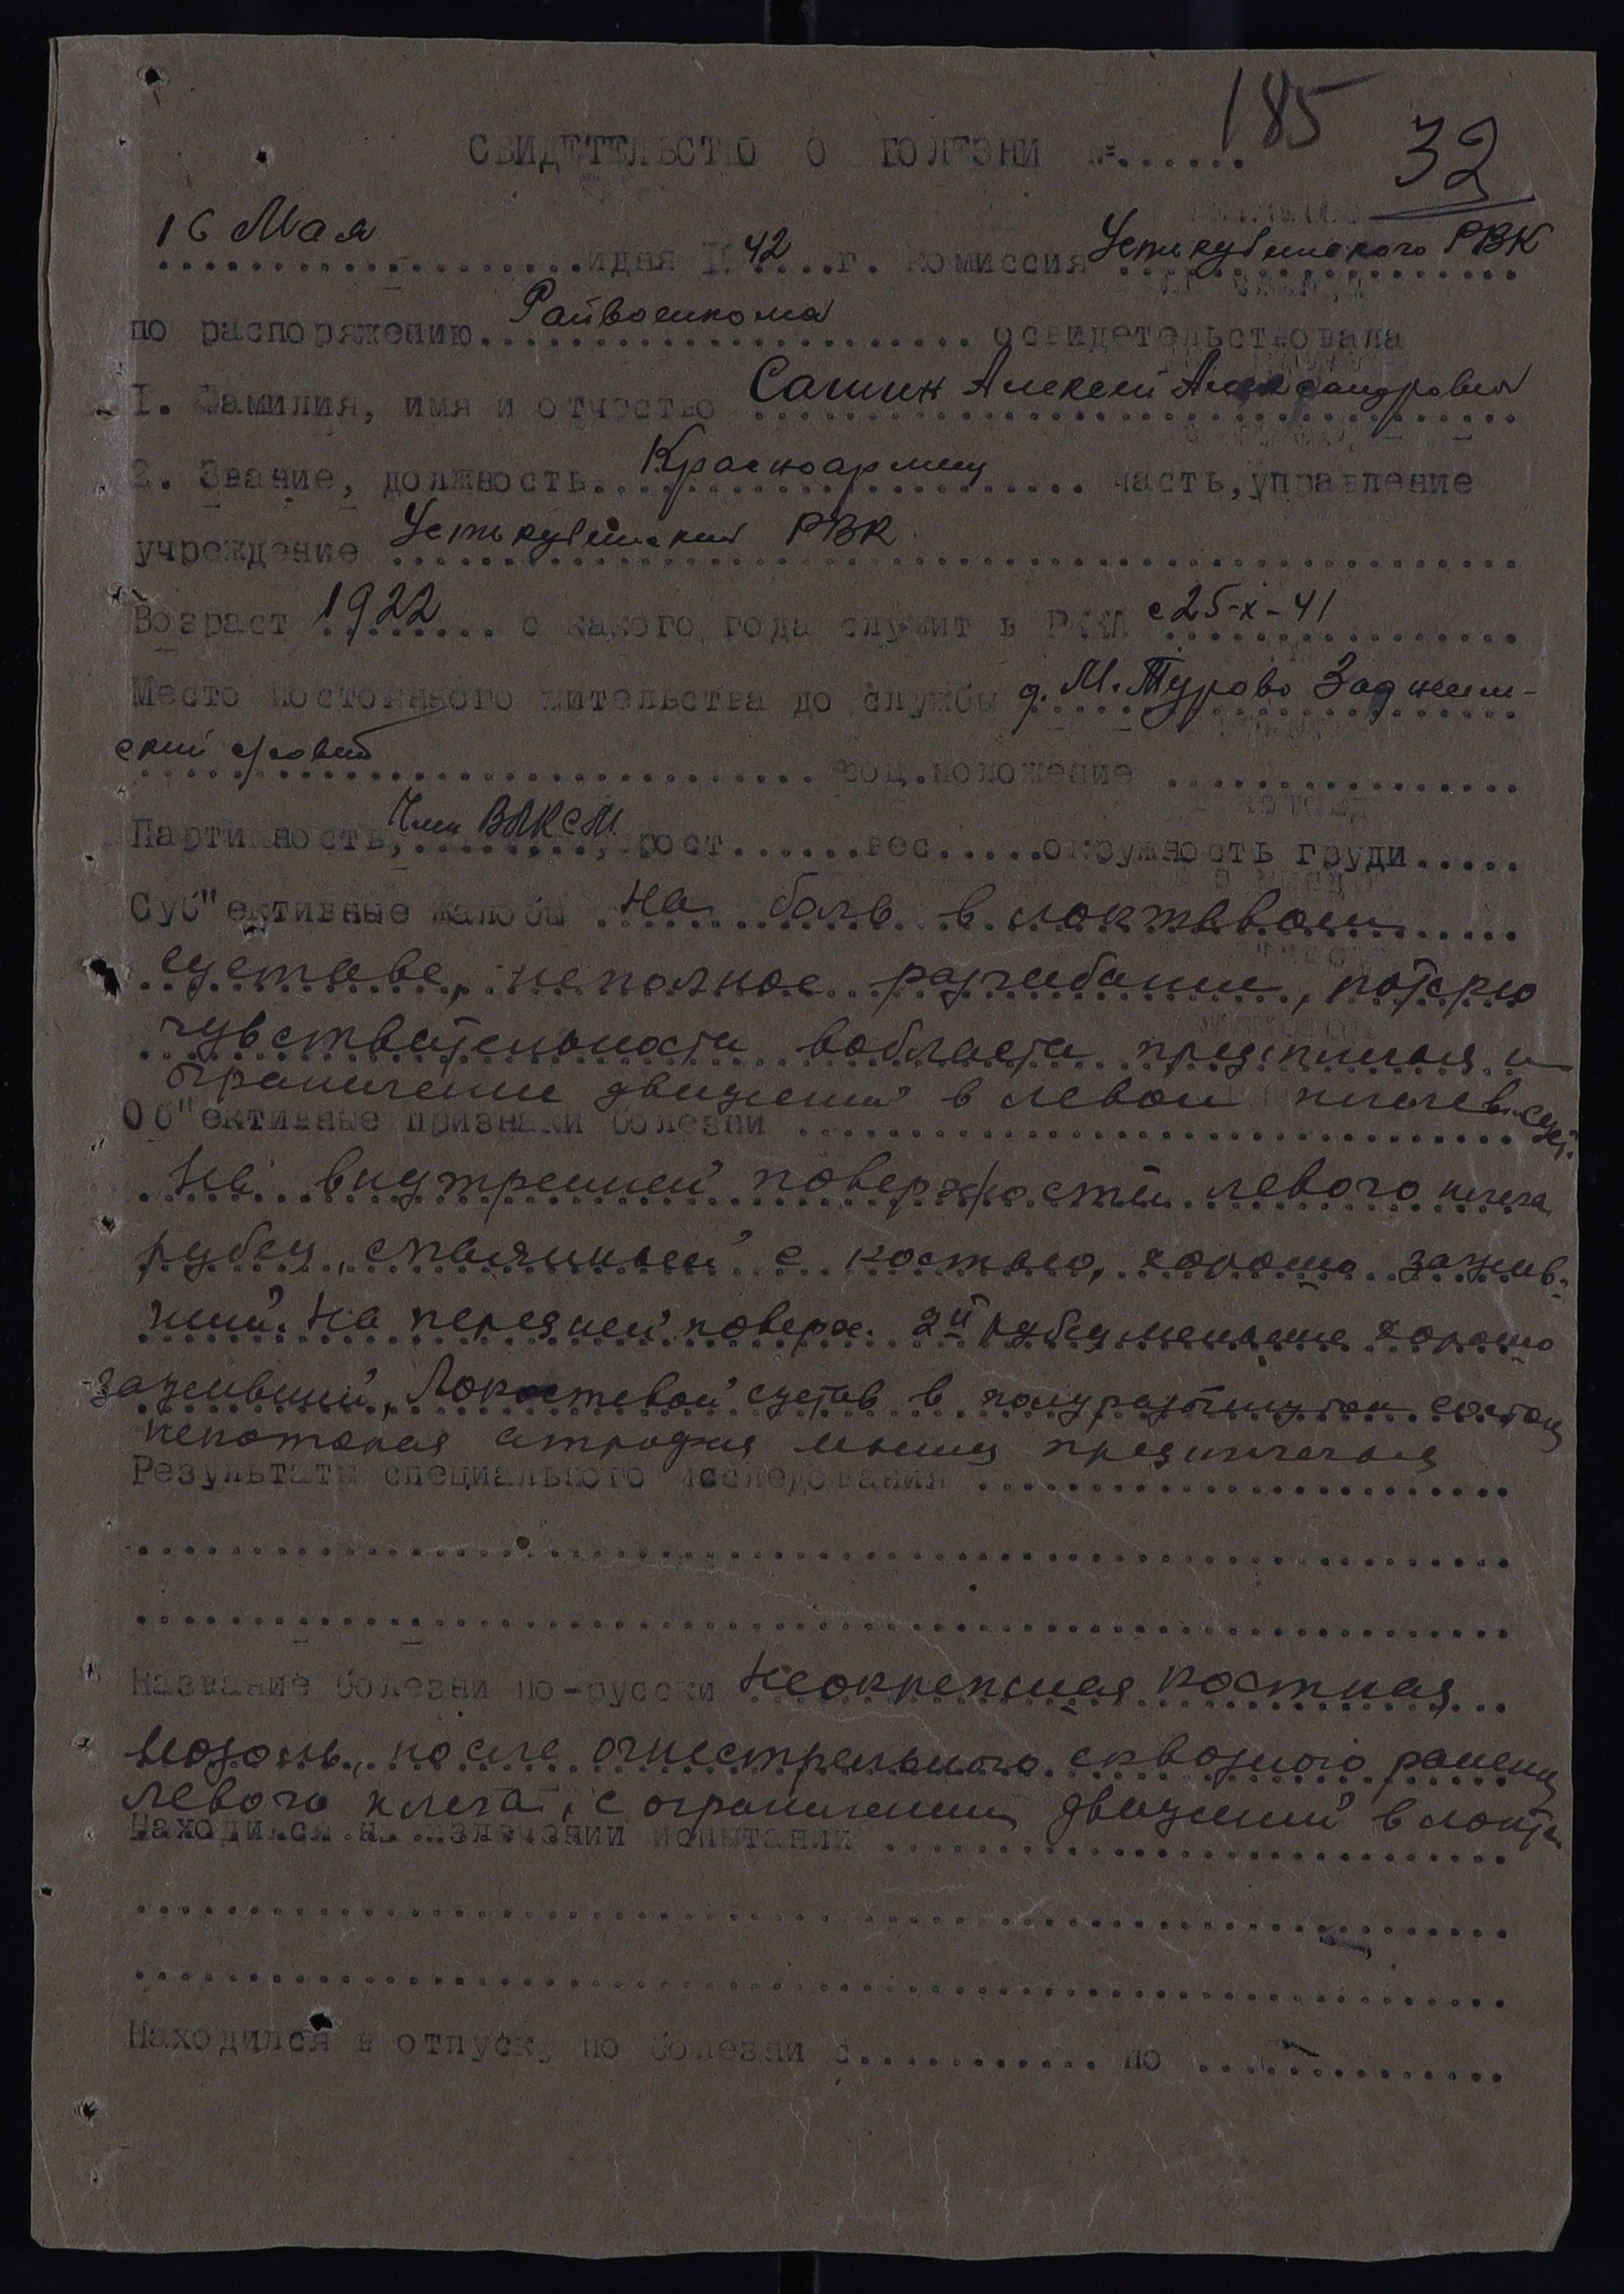 185
32
СВИДЕТЕЛЬСТВО О БОЛЕЗНИ №.......
16 Мая идня 1942 г. комиссия Устькубинского РВК
по распоряжению Райвоенкома освидетельствовала
1. Фамилия, имя и отчество Алексей Александрович
2. Звание, должность Красноармеец часть, управление
учреждение Устькубинский РВК
Возраст 1922 с какого года служит в РККА с 25-X-41
Место постоянного жительства до службы д. М. Турово
ский с/совет соц. положение
Партийность, Член ВЛКСМ, рост.......вес.....окружность груди.....
Суб"ективные жалобы На боль в локтевом
суставе, неполное разгибание, потерю
чувствительности вобласти предплечья и
ограничение движений в левом плечев. суст.
Об"ективные признаки болезни
На внутренней поверхности левого плеча
рубец, спаянный с костью, хорошо зажив-
ший. На передней поверх. 2й рубец меньше хорошо
заживший, Локостевой сустав в полуразогнутом состоян
некоторая атрофия мышц предплечья
Результаты специального исследования
Название болезни по-русски Неокрепшая костная
мозоль, после огнестрельного сквозного ранения
левого плеча, с ограничением движений в локте
Находился на излечении испытании
Находился в отпуску по болезни с............ по